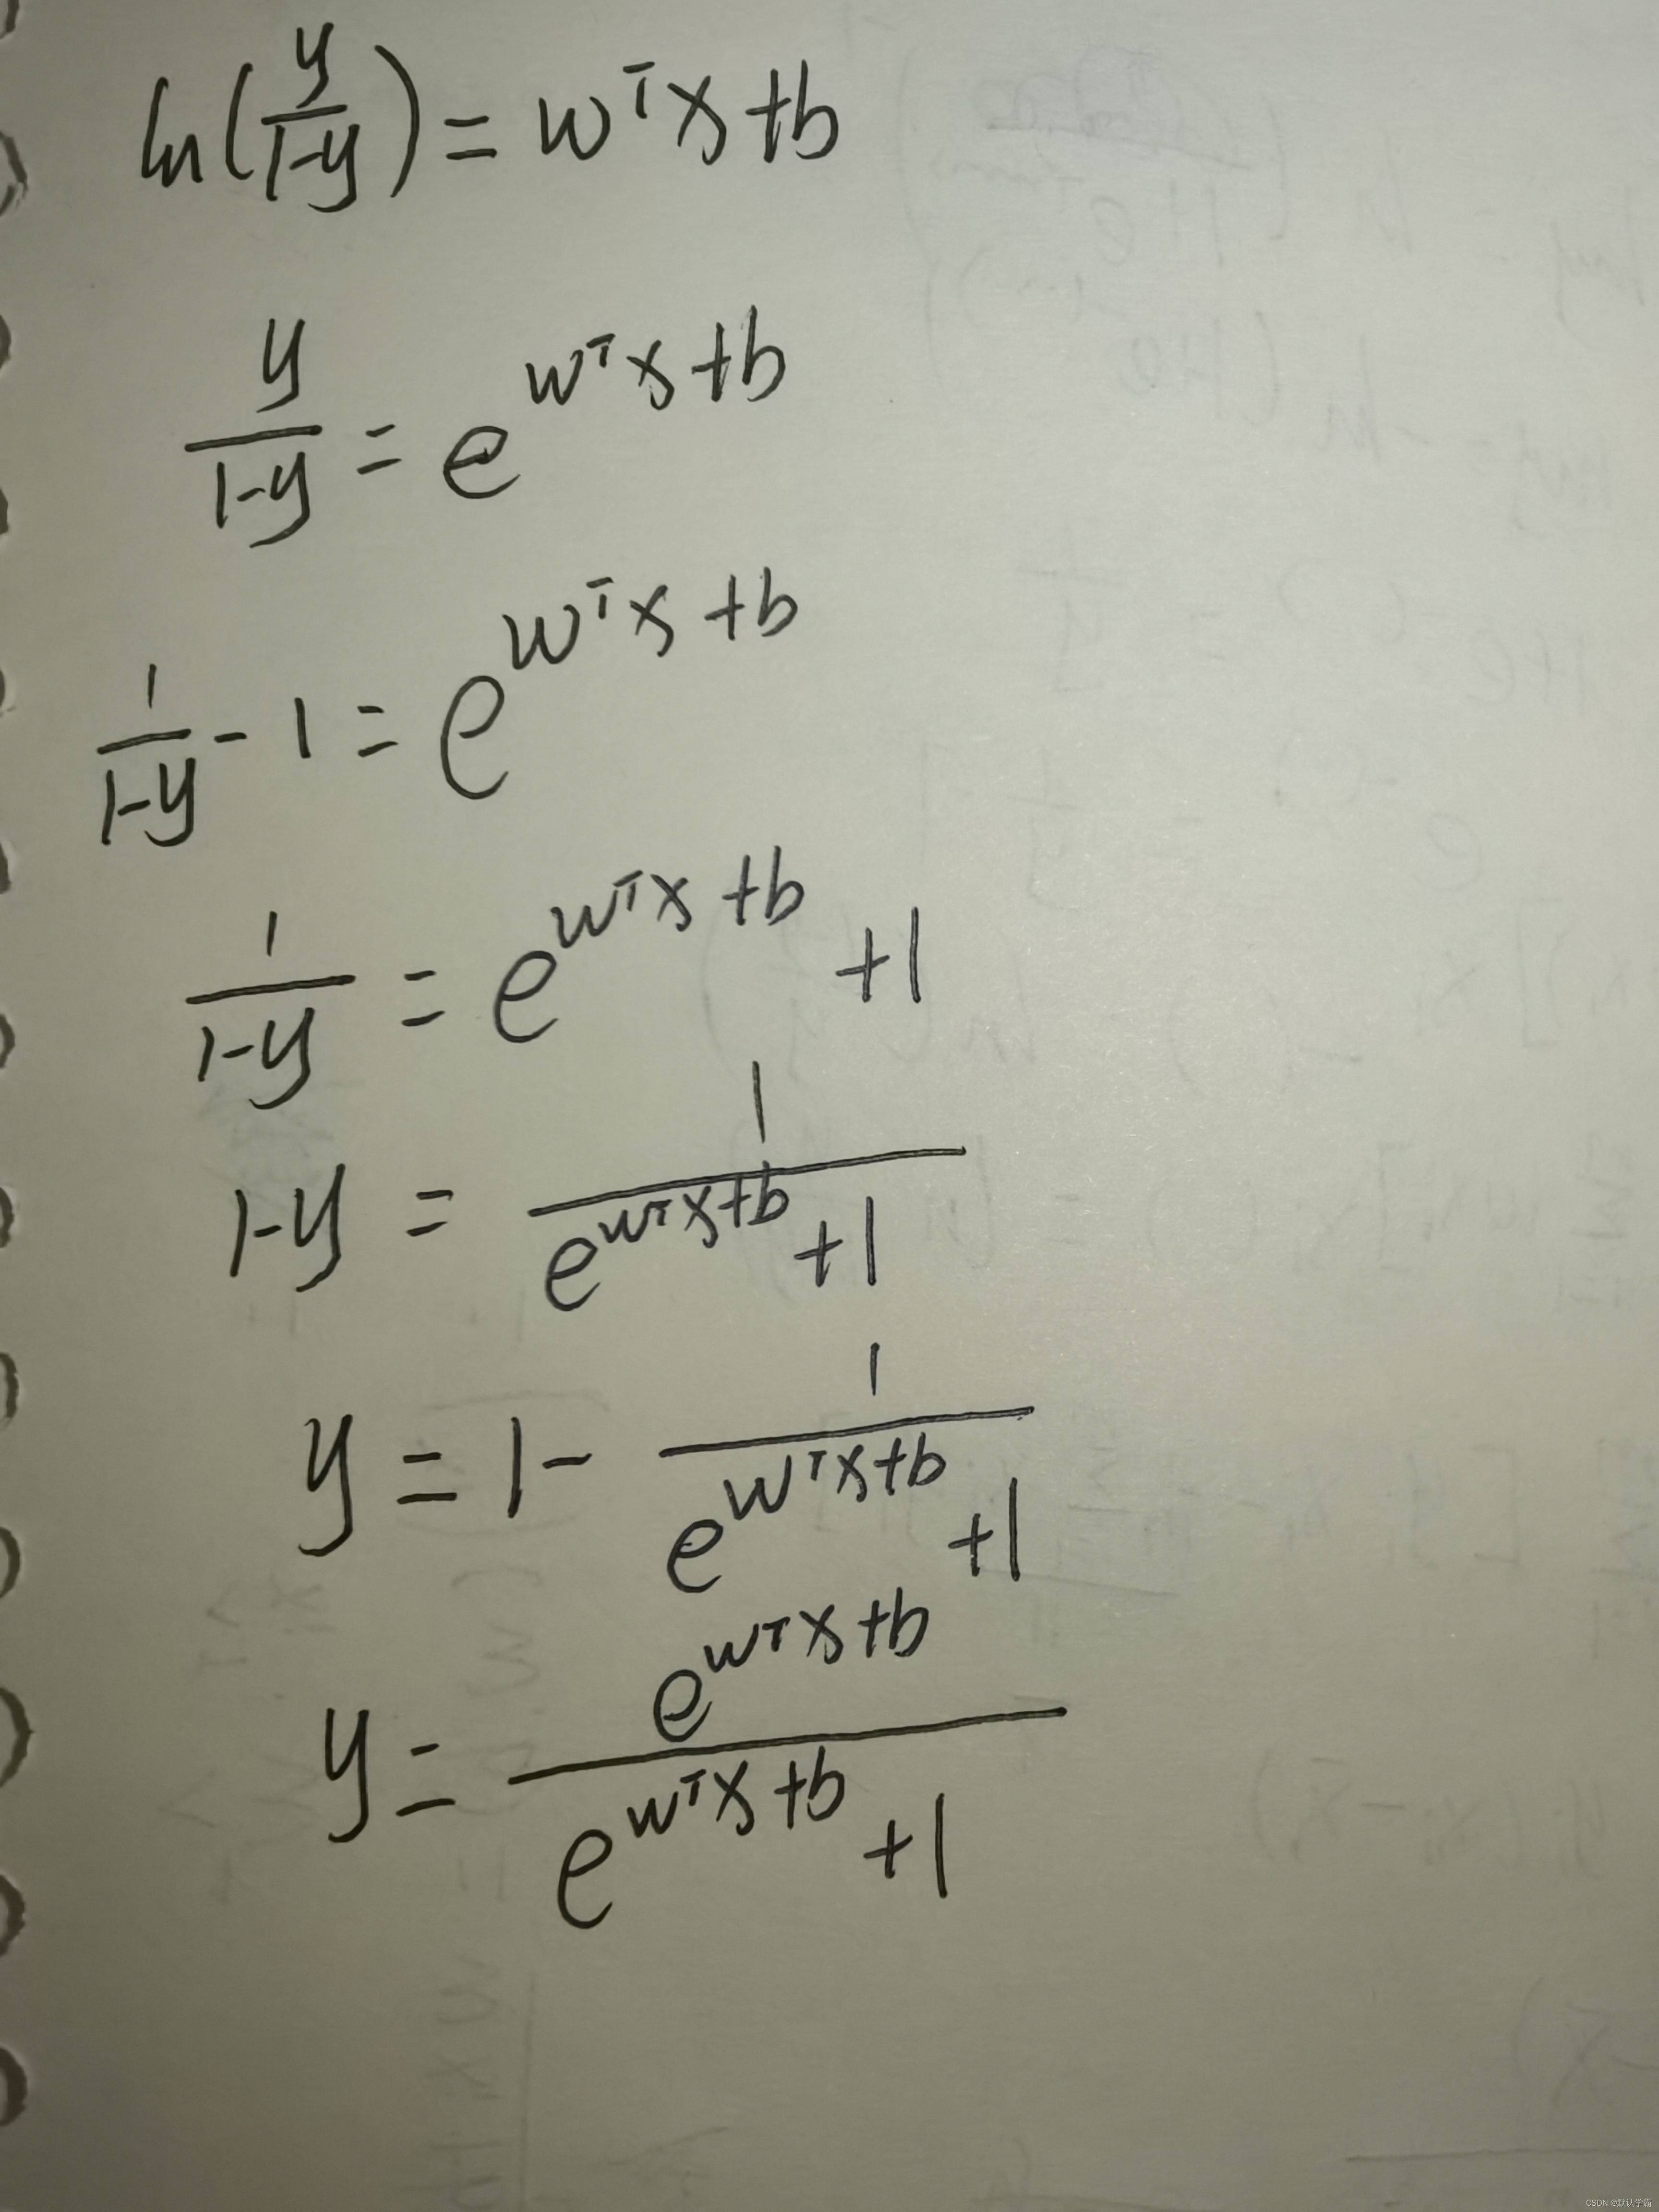 ln(y/(1-y)) = wᵀx+b
y/(1-y) = e^(wᵀx+b)
1/(1-y) - 1 = e^(wᵀx+b)
1/(1-y) = e^(wᵀx+b) +1
1-y = 1/(e^(wᵀx+b) +1)
y = 1 - 1/(e^(wᵀx+b) +1)
y = e^(wᵀx+b)/(e^(wᵀx+b) +1)
CSDN @默认学霸